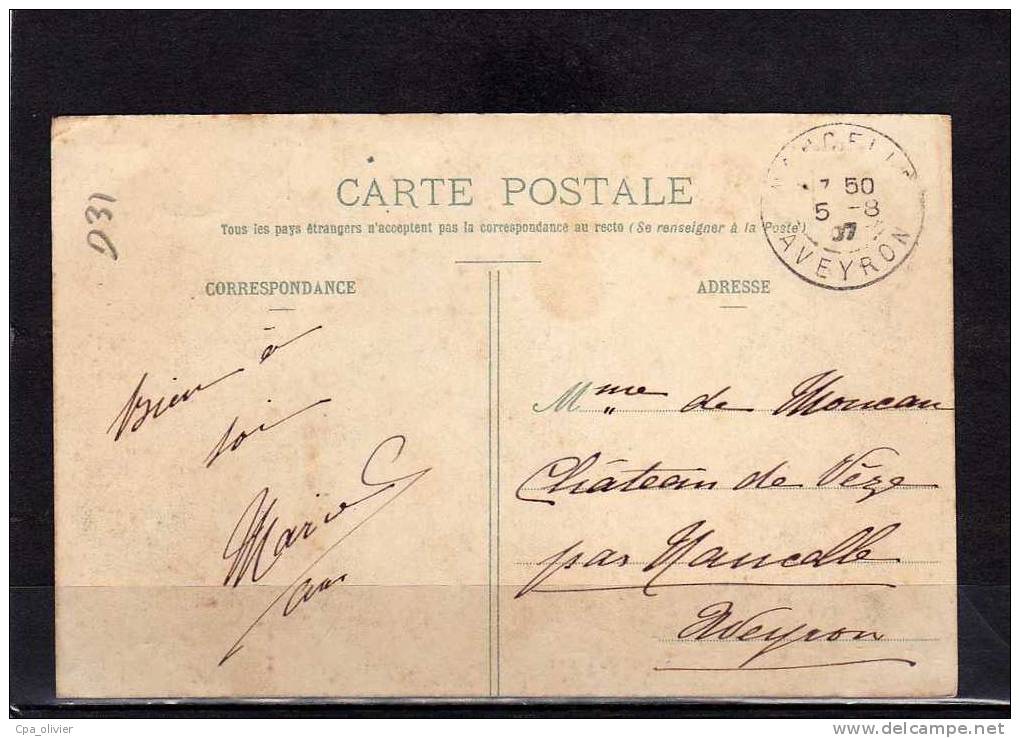 D31
CARTE POSTALE
Tous les pays étrangers n'acceptent pas la correspondance au recto (Se renseigner à la Poste)
50
5 -8
07
AVEYRON
CORRESPONDANCE
ADRESSE
Bien à
toi
Marie
Mme de
Château de Vèze
par Naucelle
Aveyron
Cpa_olivier
www.delcampe.net